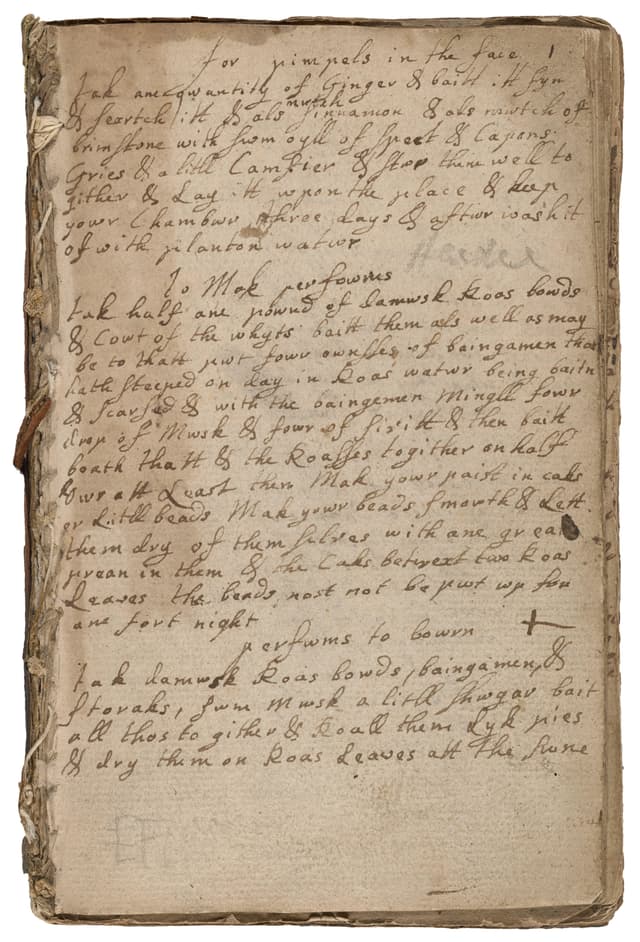 for pimpels in the face 1
tak ane qwantity of Ginger & baitt itt fyn
& seartch itt & als mutch sinnamon & als mwtch of
brimstone with swm oyll of speck & Capons
Gries & a litll Camfier & stwr them well to
gither & Lay itt wpon the place & keep
yowr Chambwr three days & aftwr wash it
of with planton watwr
To Mak perfowms
tak half ane pownd of damwsk Roas bowds
& Cowt of the whyts baitt them als well as may
be to thatt pwt fowr ownsses of baingamen that
hath steeped on day in Roas watwr being baitn
& scarsed & with the baingemen Mingll fowr
drop of Mwsk & fowr of sivitt & then baitt
boath thatt & the Roasses togither on half
howr att Least then Mak yowr paist in caks
or Litll beads Mak yowr beads smouth & Lett
them dry of them selves with ane great
prean in them & the Caks betwext two Roas
Leaves the beads most not be pwt wp for
ane fort night
perfwms to bowrn
tak damwsk Roas bowds, baingamen, &
storaks, swm Mwsk a litll shwgar bait
all thos to gither & Roall them Lyk pies
& dry them on Roas Leaves att the swne